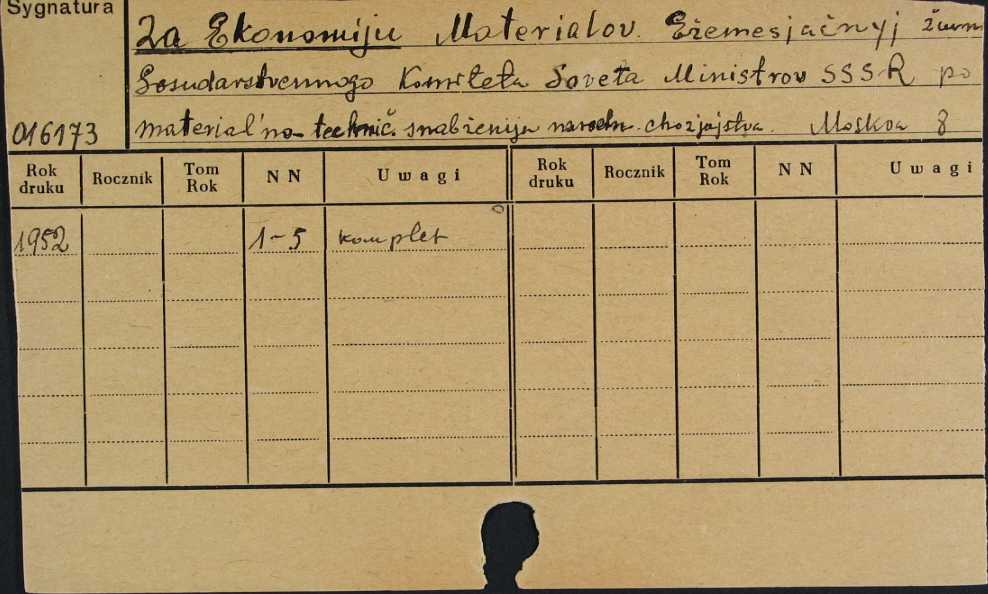 Sygnatura
Za Ekonomiju Materialov. Ežemesjačnyj žurn
Gosudarstvennogo Komiteta Soveta Ministrov SSSR po
016173 material'no-technič. snabženiju narodn. chozjajstva. Moskva 8
Rok druku Rocznik Tom Rok NN Uwagi Rok druku Rocznik Tom Rok NN Uwagi
1952 1-5 komplet